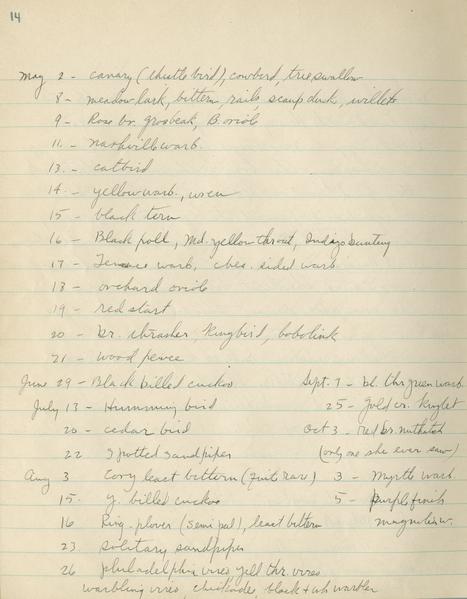 14
May 2 - canary (thistle bird), cowbird, tree swallow
8 - meadow lark, bittern, rails, scaup duck, willets
9 - Rose br. grosbeak, B. oriole
11. - nashville warb.
13. - catbird
14. - yellow warb., wren
15 - black tern
16 - Black poll, Md. yellow throat, Indigo bunting
17 - Tenn warb, ches. sided warb
18 - orchard oriole
19 - red start
20 - br. thrasher, Kingbird, bobolink
21 - wood pewee
June 29 - Black billed cuckoo Sept. 7 - bl. thr green warb
July 13 - Humming bird 25 - Gold cr. Kinglet
20 - cedar bird Oct 3 - red br. nuthatch
22 Spotted sandpiper (only one she ever saw)
Aug 3 Cory least bittern (quite rare) 3 - Myrtle warb.
15. y. billed cuckoo 5 - Purple finch
16 Ring. plover (semi pal), least bittern magnolia w.
23. solitary sandpiper
26 philadelphia vireo yell thr. vireo
warbling vireo, chickadee, black & wh warbler